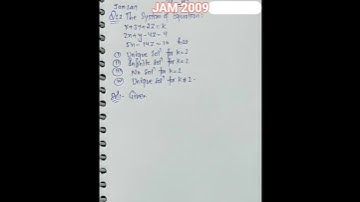 Jamsan
JAM-2009
Q.22 The System of Equation:
x+3y+2z=k
2x+y-4z=4
5x-14z=10 has
(i) Unique Sol^n for k=2
(ii) Infinite Sol^n for k=2
(iii) No Sol^n k=2
(iv) Unique Sol^n for k≠2.
Sol:- Given